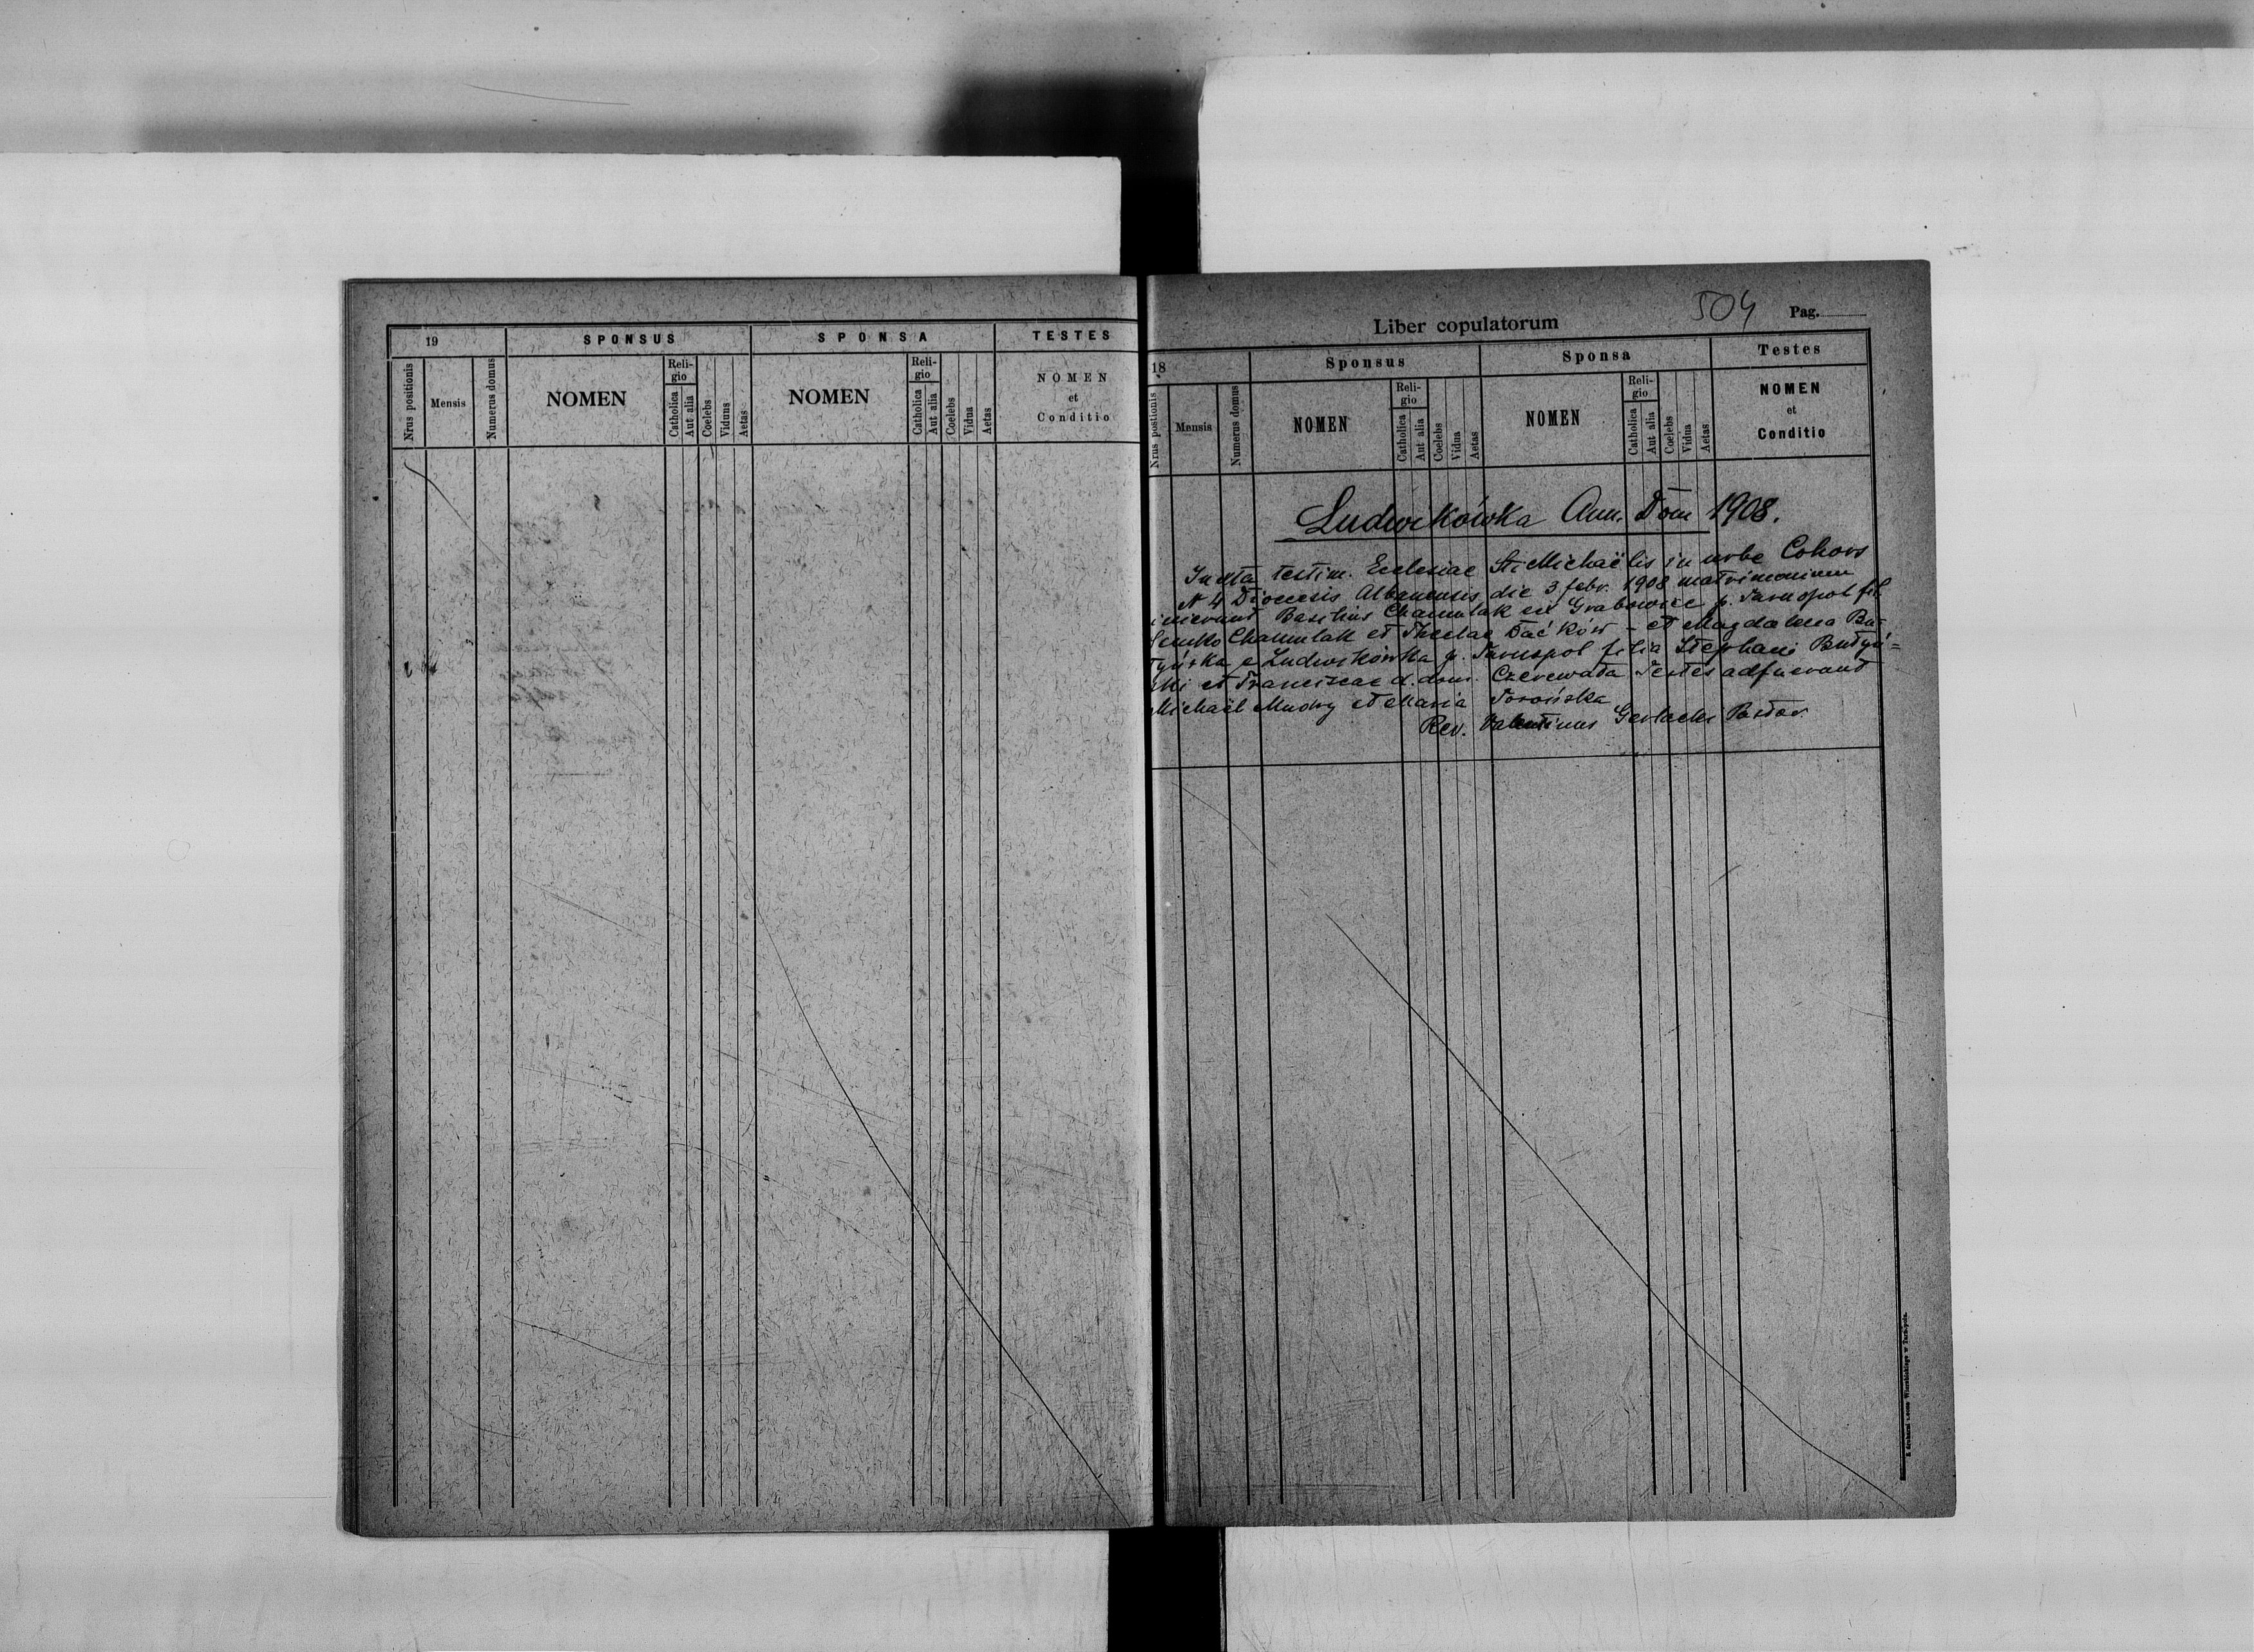 19
SPONSUS
SPONSA
TESTES
Nrus positionis
Mensis
Numerus domus
NOMEN
Reli-
gio
Catholica
Aut alia
Coelebs
Viduus
Aetas
NOMEN
Reli-
gio
Catholica
Aut alia
Coelebs
Vidua
Aetas
NOMEN
et
Conditio
Liber copulatorum
504
Pag.
18
Sponsus
Sponsa
Testes
Nrus postionis
Mensis
Numerus domus
NOMEN
Reli-
gio
Catholica
Aut alia
Coelebs
Vidua
Aetas
NOMEN
Reli-
gio
Catholica
Aut alia
Coelebs
Vidua
Aetas
NOMEN
et
Conditio
Ludwikówka Ann. Dom 1908.
Juxta testim. Ecclesiae St. Michaëlis in urbe Cohoes
N 4 Diocesis Albanensis die 3 febr. 1908 matrimonium
inierunt Basilius Chamulak ex Grabowiec p. Tarnopol fil
Semko Chamulak et Theclae Daćków - et Magdalena Bu-
tyńska e Ludwikówka p. Tarnopol filia Stephani Butyń=
ski et Franciscae d. dom. Czerewata Testes adfuerunt
Michaël Mudry et Maria Torońska
Rev. Valentinus Gerlacki Pastor